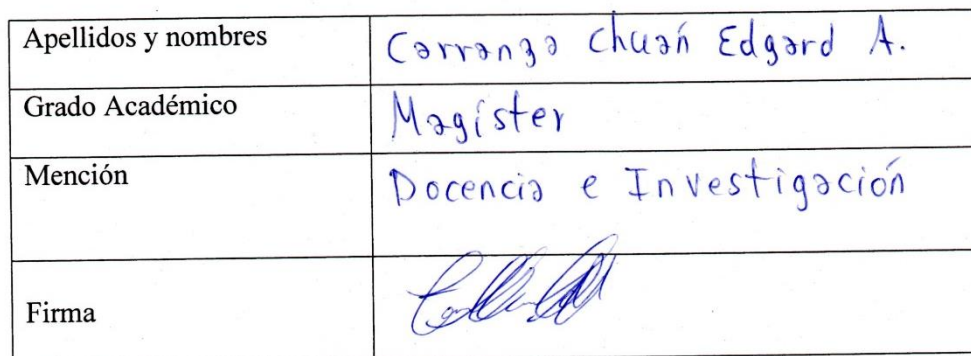 Apellidos y nombres Carranza Chuán Edgard A.
Grado Académico Magíster
Mención Docencia e Investigación
Firma